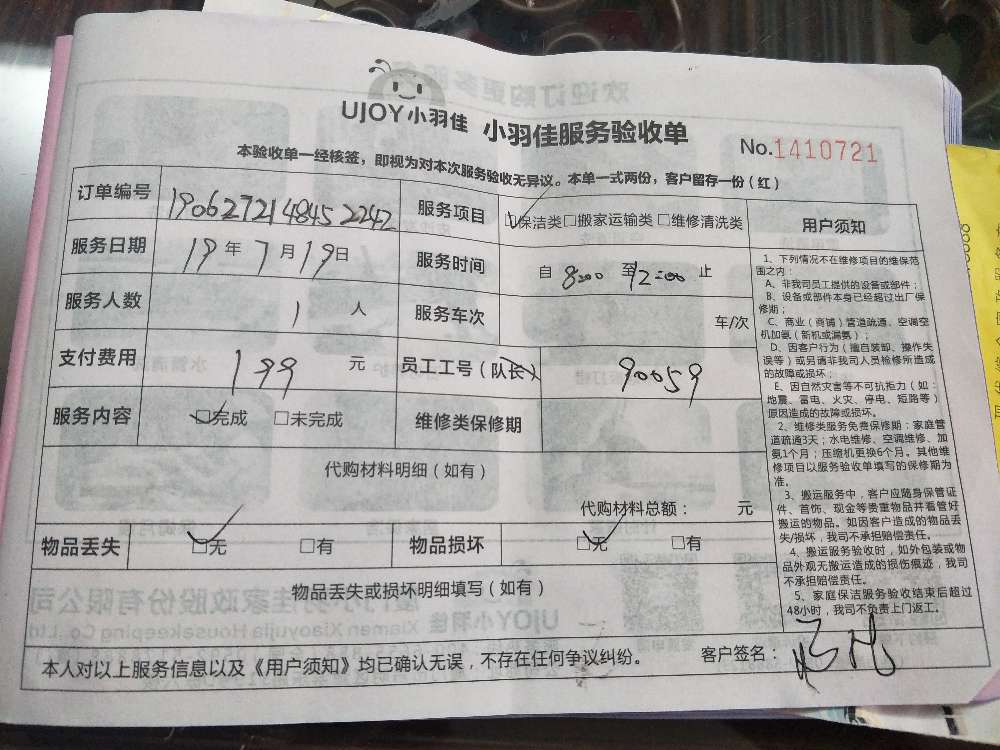 UJOY小羽佳 小羽佳服务验收单
No.1410721
本验收单一经核签，即视为对本次服务验收无异议。本单一式两份，客户留存一份（红）
订单编号 190627214845 2242 服务项目 保洁类□搬家运输类□维修清洗类
服务日期 19年7月19日 服务时间 自 8:00 至 12:00 止
服务人数 1 人 服务车次 车/次
支付费用 199 元 员工工号（队长） 90059
服务内容 □完成 □未完成 维修类保修期
代购材料明细（如有）
代购材料总额： 元
物品丢失 □无 □有 物品损坏 □无 □有
物品丢失或损坏明细填写（如有）
用户须知
1、下列情况不在维修项目的维保范
围之内：
A、非我司员工提供的设备或部件；
B、设备或部件本身已经超过出厂保
修期；
C、商业（商铺）管道疏通、空调空
机加氨（新机或漏氨）；
D、因客户行为（擅自装卸、操作失
误等）或另请非我司人员检修所造成
的故障或损坏；
E、因自然灾害等不可抗拒力（如：
地震、雷电、火灾、停电、短路等）
原因造成的故障或损坏。
2、维修类服务免费保修期：家庭管
道疏通3天；水电维修、空调维修、加
氨1个月；压缩机更换6个月。其他维
修项目以服务验收单填写的保修期为
准。
3、搬运服务中，客户应随身保管证
件、首饰、现金等贵重物品并看管好
搬运的物品。如因客户造成的物品丢
失/损坏，我司不承担赔偿责任。
4、搬运服务验收时，如外包装或物
品外观无搬运造成的损伤痕迹，我司
不承担赔偿责任。
5、家庭保洁服务验收结束后超过
48小时，我司不负责上门返工。
本人对以上服务信息以及《用户须知》均已确认无误，不存在任何争议纠纷。 客户签名：